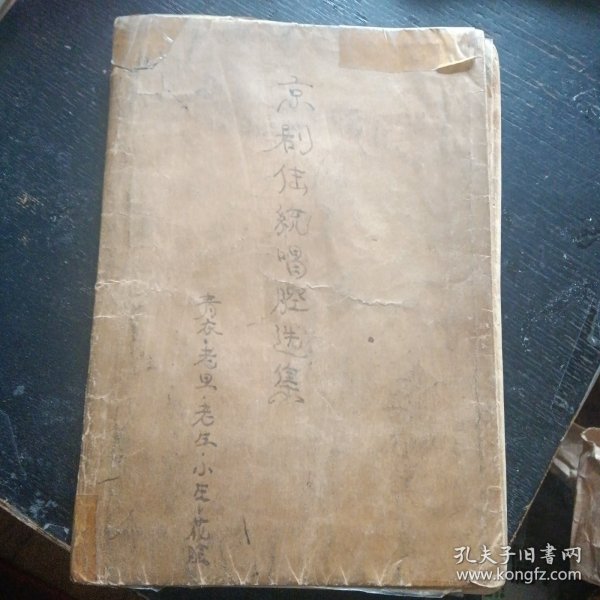 京剧传統唱腔选集
青衣·老旦·老生·小生·花脸
孔夫子旧书网
www.kongfz.com